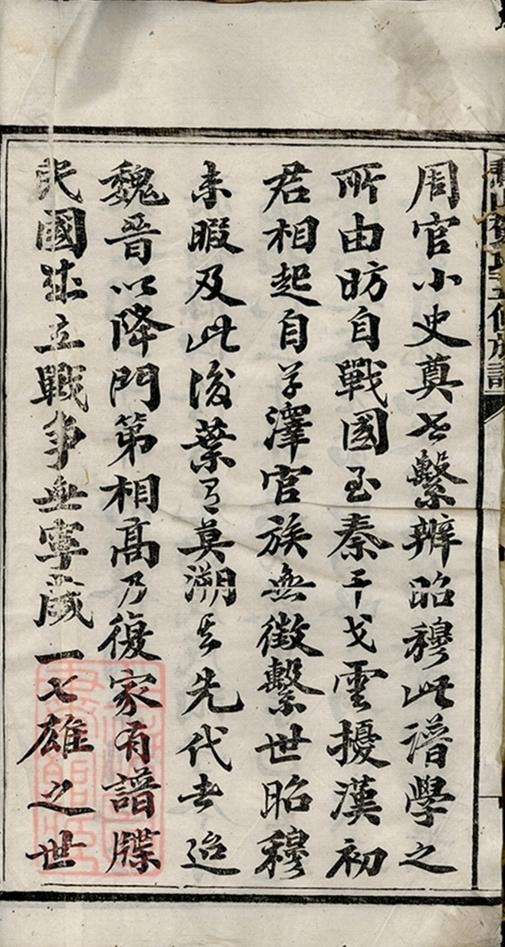 周官小史奠世繫辨昭穆此譜學之
所由昉自戰國至秦干戈雲擾漢初
君相起自草澤官族無徵繫世昭穆
未暇及此後葉有莫溯其先代者迨
魏晉以降門第相高乃復家有譜牒
民國成立戰爭無寧歲一七雄之世